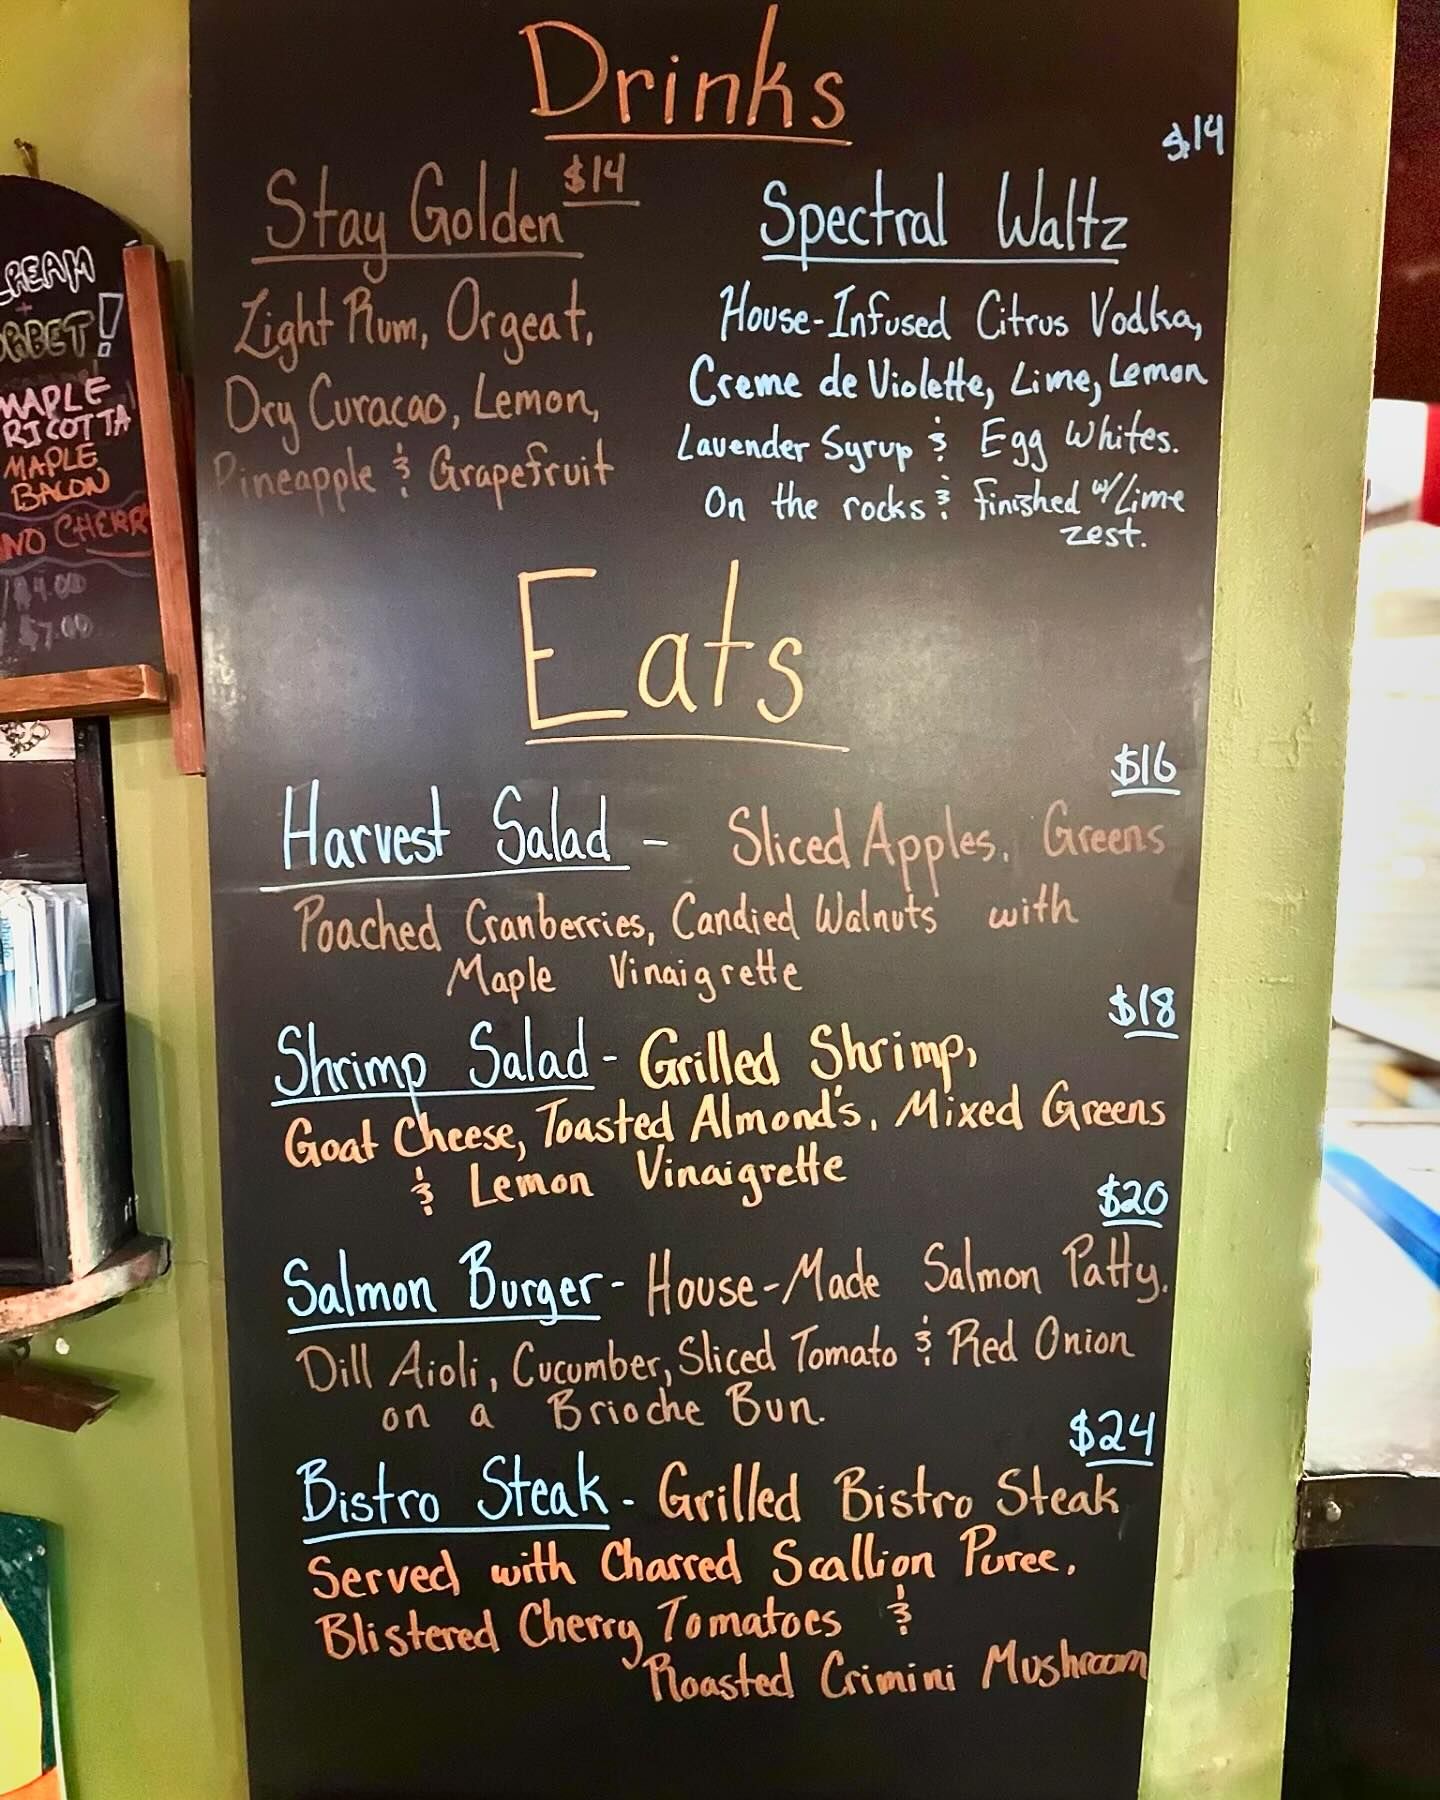 Drinks
Stay Golden $14
Light Rum, Orgeat,
Dry Curacao, Lemon,
Pineapple & Grapefruit
$14
Spectral Waltz
House-Infused Citrus Vodka,
Creme de Violette, Lime, Lemon
Lavender Syrup & Egg Whites.
On the rocks & finished w/ Lime
zest.
Eats
$16
Harvest Salad - Sliced Apples, Greens
Poached Cranberries, Candied Walnuts with
Maple Vinaigrette
$18
Shrimp Salad - Grilled Shrimp,
Goat Cheese, Toasted Almond's, Mixed Greens
& Lemon Vinaigrette
$20
Salmon Burger - House-Made Salmon Patty,
Dill Aioli, Cucumber, Sliced Tomato & Red Onion
on a Brioche Bun.
$24
Bistro Steak - Grilled Bistro Steak
Served with Charred Scallion Puree,
Blistered Cherry Tomatoes &
Roasted Crimini Mushroom
CREAM
+
ORBET!
MAPLE
RICOTTA
MAPLE
BACON
NO CHERRY
$4.00
$7.00